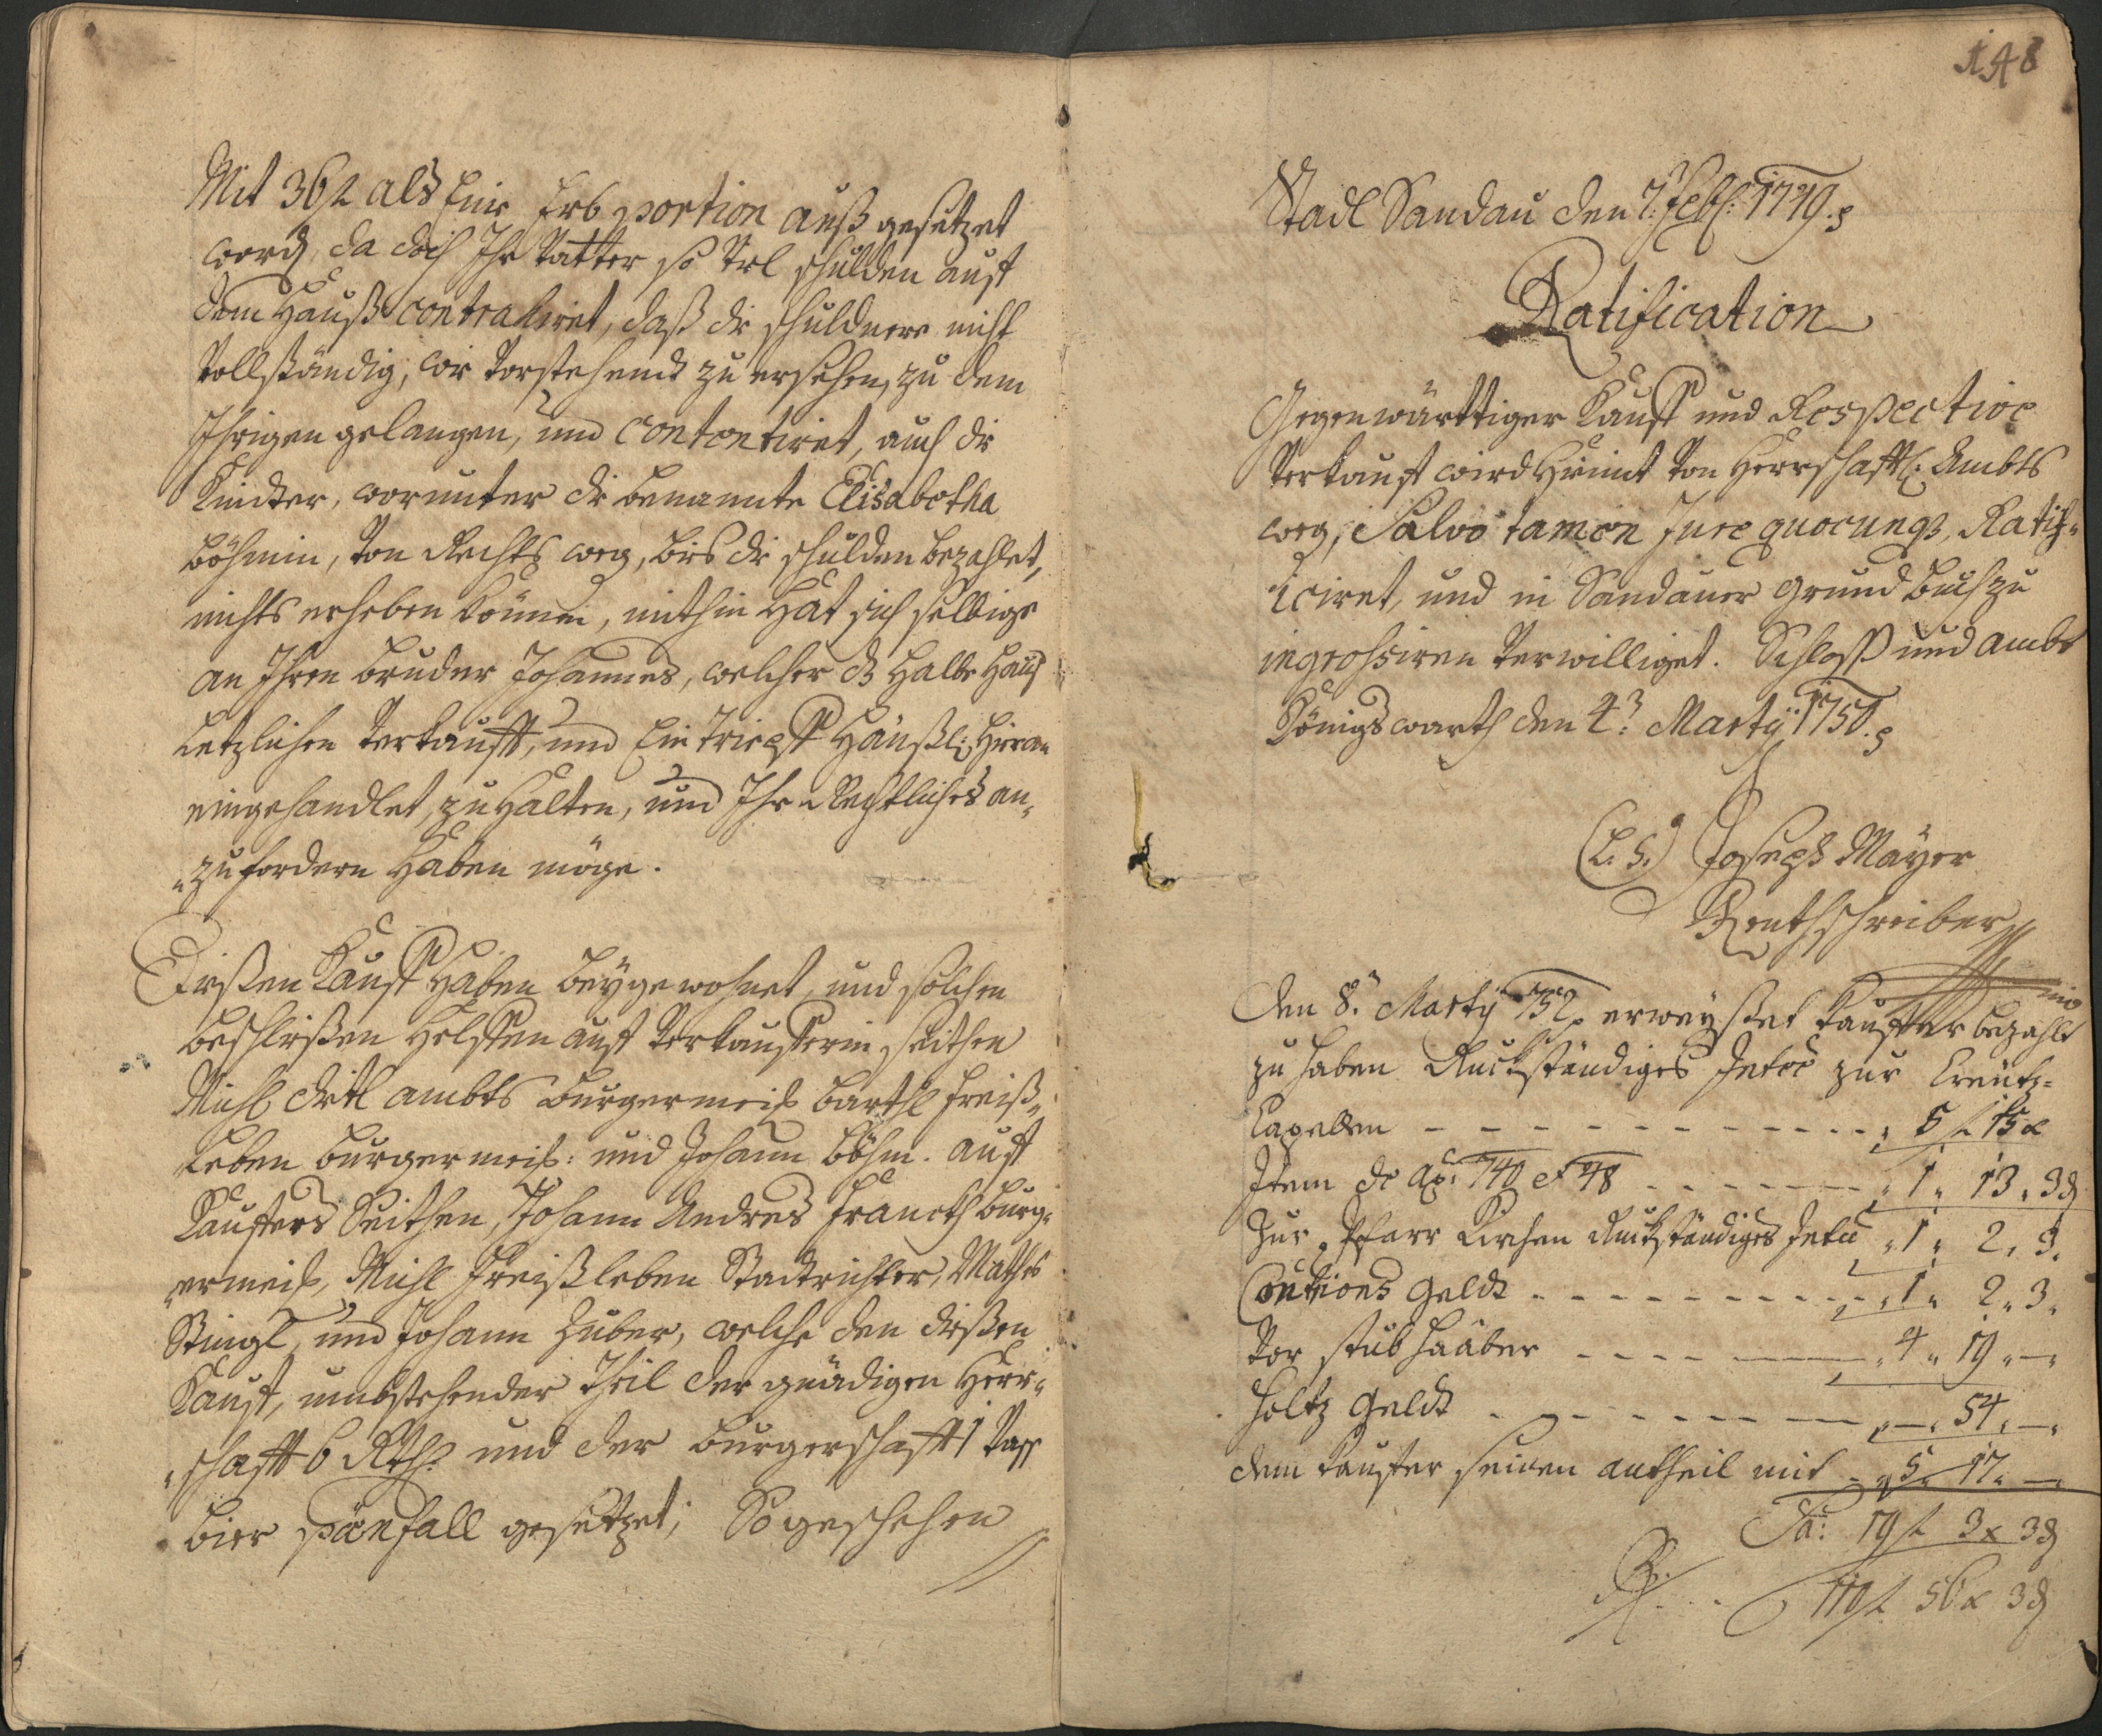 Mit 36 f als Eine Erb portion auß gesetzet
word, da doch Ihr Vatter so viel schulden auf
dem Hauß contrahiret, daß die schuldnere nicht
Vollständig, wie Vorstehend zu ersehen, zu dem
Ihrigen gelangen, und contentiret, auch die
Kinder, worunter die benannte Elisabetha
Böhmin, Von Rechts weg, bies die schulden bezahlet,
nichts erheben können, mithin hat sich selbige
an Ihren bruder Johannes, welcher das halbe Hauß
letzlichen Verkaufft, und Ein Häußl: hieran
eingehandlet, zu halten, und Ihr Rechtliches an„
„zufordern haben möge.
Dießen Kauff haben beygewohnet, und solchen
beschließen helffen auf Verkaufferin seithen
Michl Dietl ambts burgermeist: Barthl Freiß„
leben burgermeist: und Johann Böhm. auf
Kauffers Seithen, Johann Andres burg„
„ermeist, Michl Freißleben Stadtrichter, Mathes
Stingl, und Johann Huber, welche den dießen
Kauf, umbstehender Theil der gnädigen Herr„
„schafft 6 Rth: und der burgerschafft 1 Vaß
bier pönfall gesetzet; So geschehen
148
Stadl Sandau den 7: Feb: 1749.
Ratification
Gegenwärttiger Kauff und Respective
Verkauf wird hiemit Von Herrschafftl: Ambts
weg, Salvo tamen Jure quocunq3, Ratif„
iciret, und in Sandauer grund buch zu
ingrossiren Verwilliget. Schloß und ambt
Königswarth den 4? Marty 1750.
(L. S.) Joseph Mayer
Renthschreiber
Den 8: Marty 752 erweyßet Kauffer bezahlt
zu haben Ruckständiges Intee zur Creütz=
Capellen - - - - - - - - - - - - 5 f 15 x
Item de ao: 740 et 48 - - - - - - „ 1 „ 13 „ 3 ₰
Zur Pfarr Kirchen Ruckständiges Intee „ 1 „ 2 „ 3 „
Geldt - - - - - - - - - - „ 1 „ 2 „ 3 „
Vor haaber - - - - - - „ 4 „ 19 „ — „
Holtz Geldt - - - - - - - - „ — „ 54 „ — „
dem Kauffer seinen antheil mit - „ 5 „ 17 „ —
Sa: 19 f 3 x 3 ₰
56 x 3 ₰